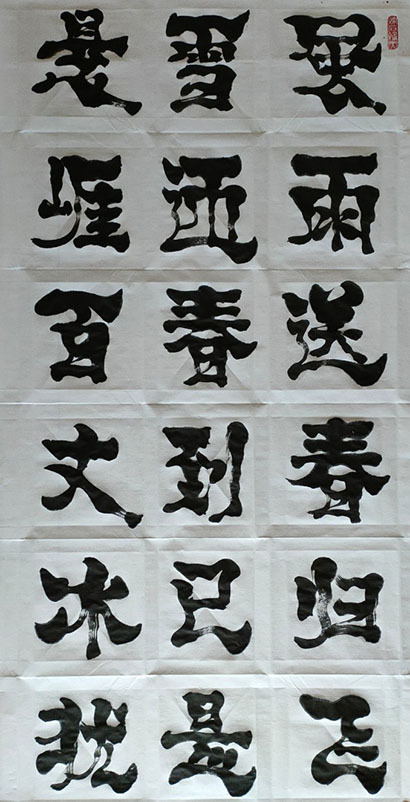 風雨送春归飞
雪迎春到已是
悬崖百丈冰犹